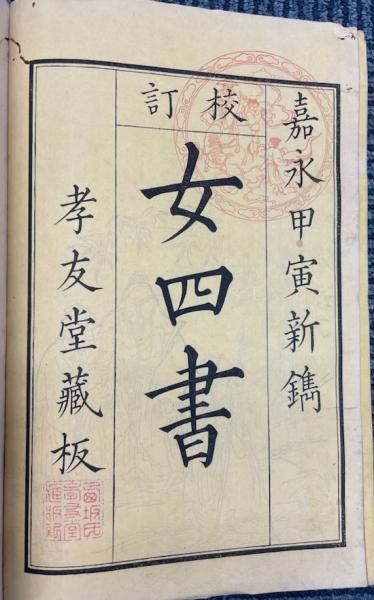 嘉永甲寅新鐫
校訂
女四書
孝友堂藏板